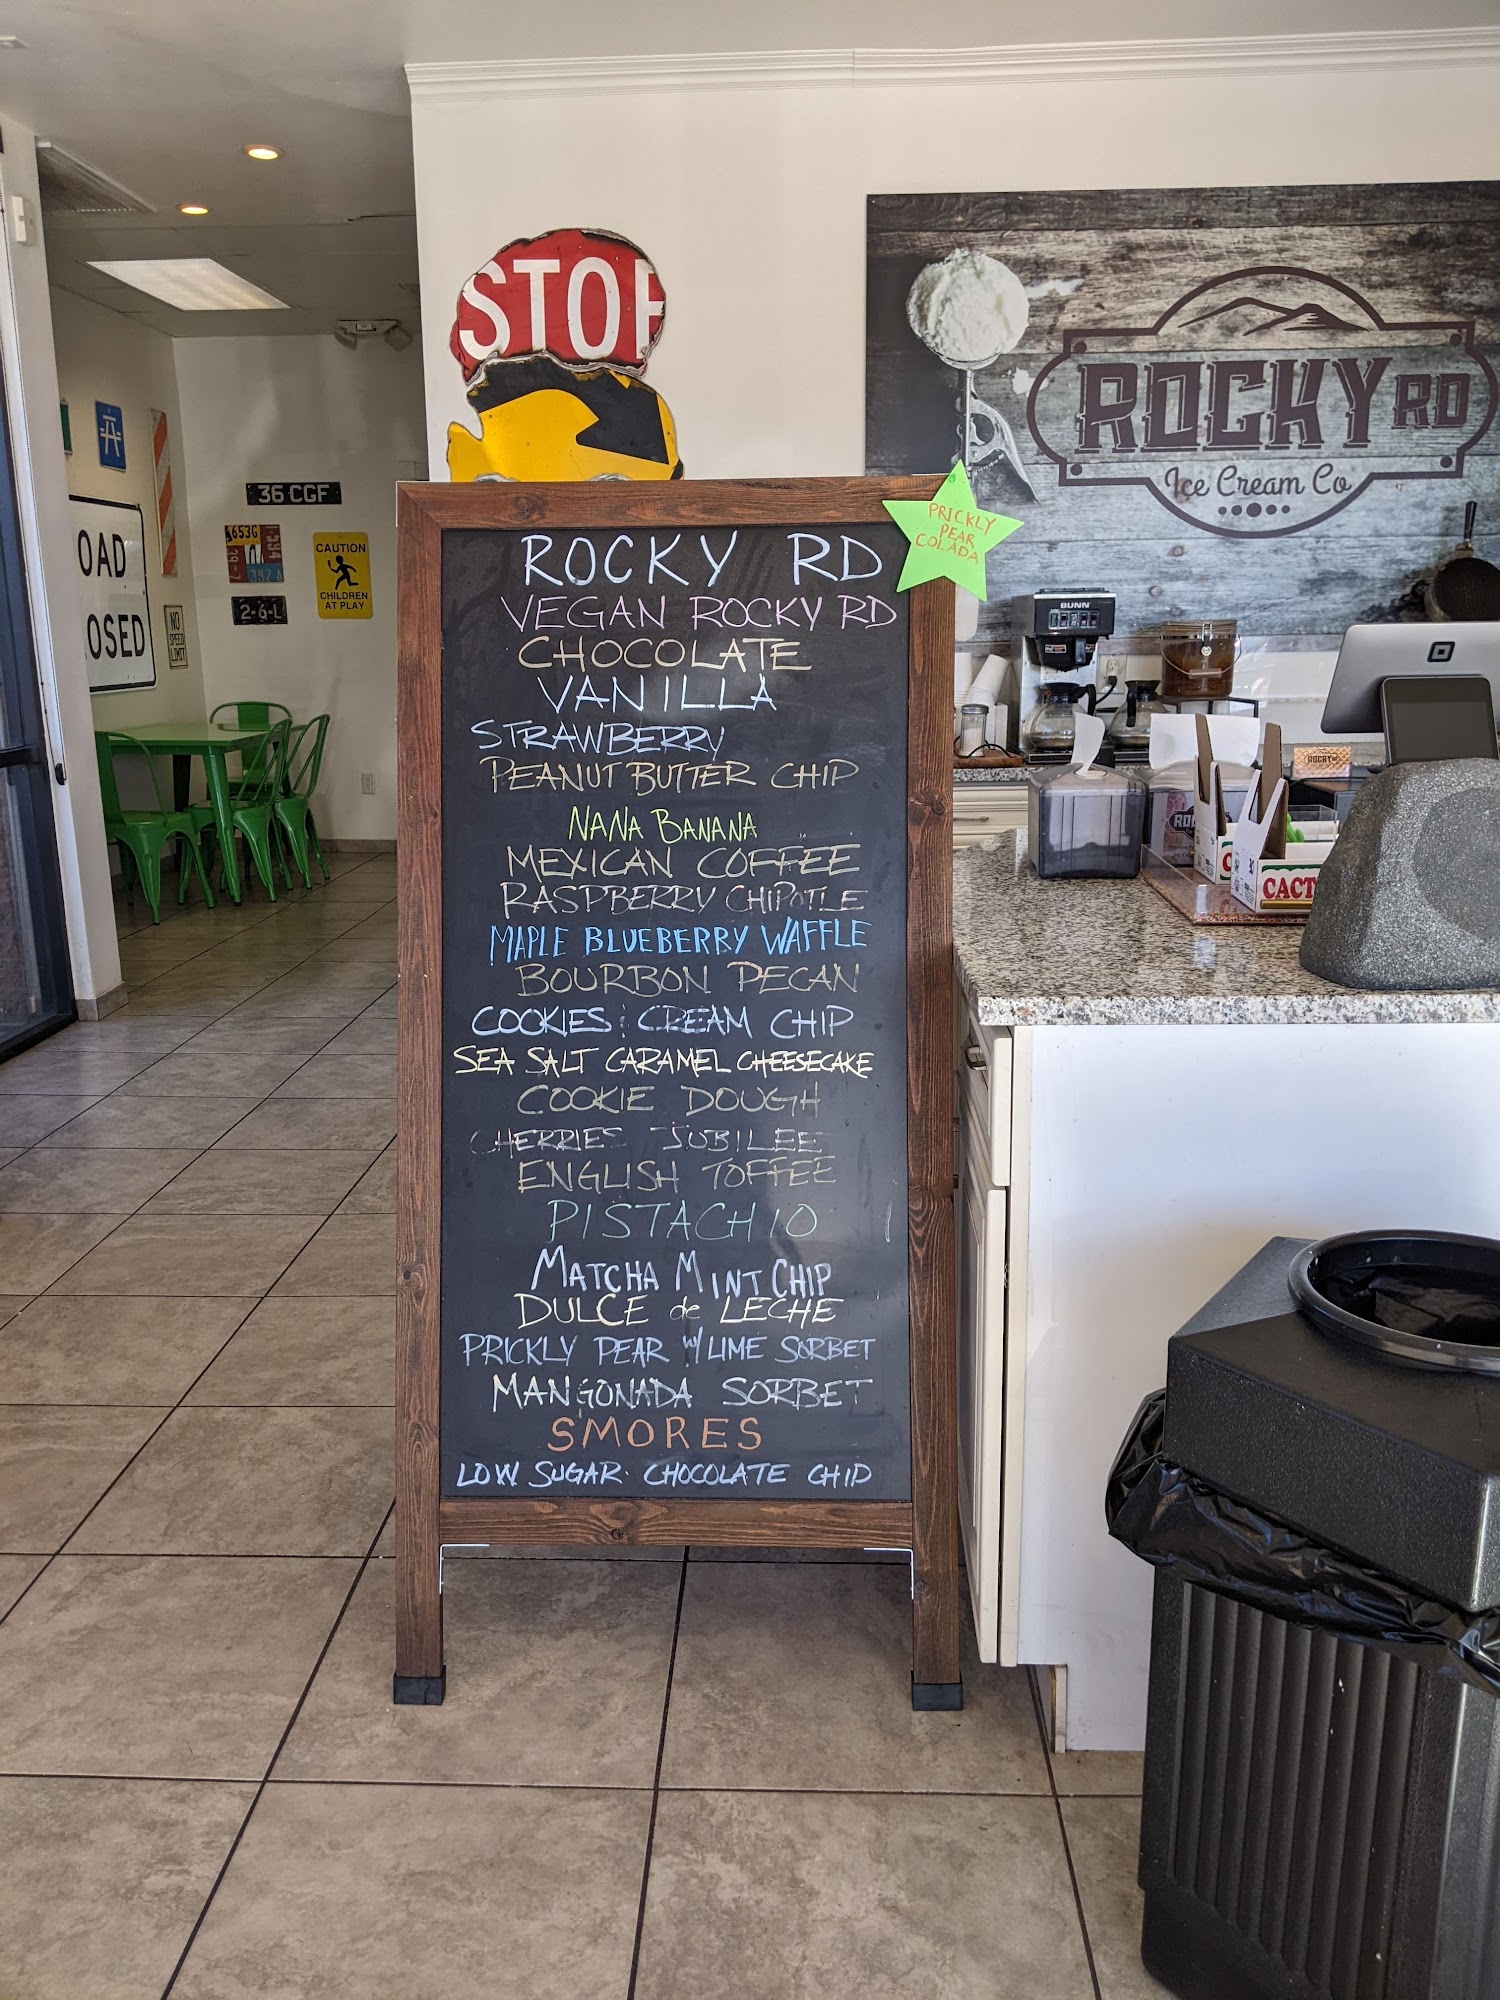 STOP
ROCKY RD
Ice Cream Co
PRICKLY
PEAR
COLADA
36 CGF
653G
CAUTION
CHILDREN
AT PLAY
2-6-L
NO
SPEED
LIMIT
OAD
OSED
BUNN
CACT
ROCKY RD
VEGAN ROCKY RD
CHOCOLATE
VANILLA
STRAWBERRY
PEANUT BUTTER CHIP
NANA BANANA
MEXICAN COFFEE
RASPBERRY CHIPOTLE
MAPLE BLUEBERRY WAFFLE
BOURBON PECAN
COOKIES & CREAM CHIP
SEA SALT CARAMEL CHEESECAKE
COOKIE DOUGH
CHERRIES JUBILEE
ENGLISH TOFFEE
PISTACHIO
MATCHA MINT CHIP
DULCE de LECHE
PRICKLY PEAR W/ LIME SORBET
MANGONADA SORBET
S'MORES
LOW SUGAR CHOCOLATE CHIP